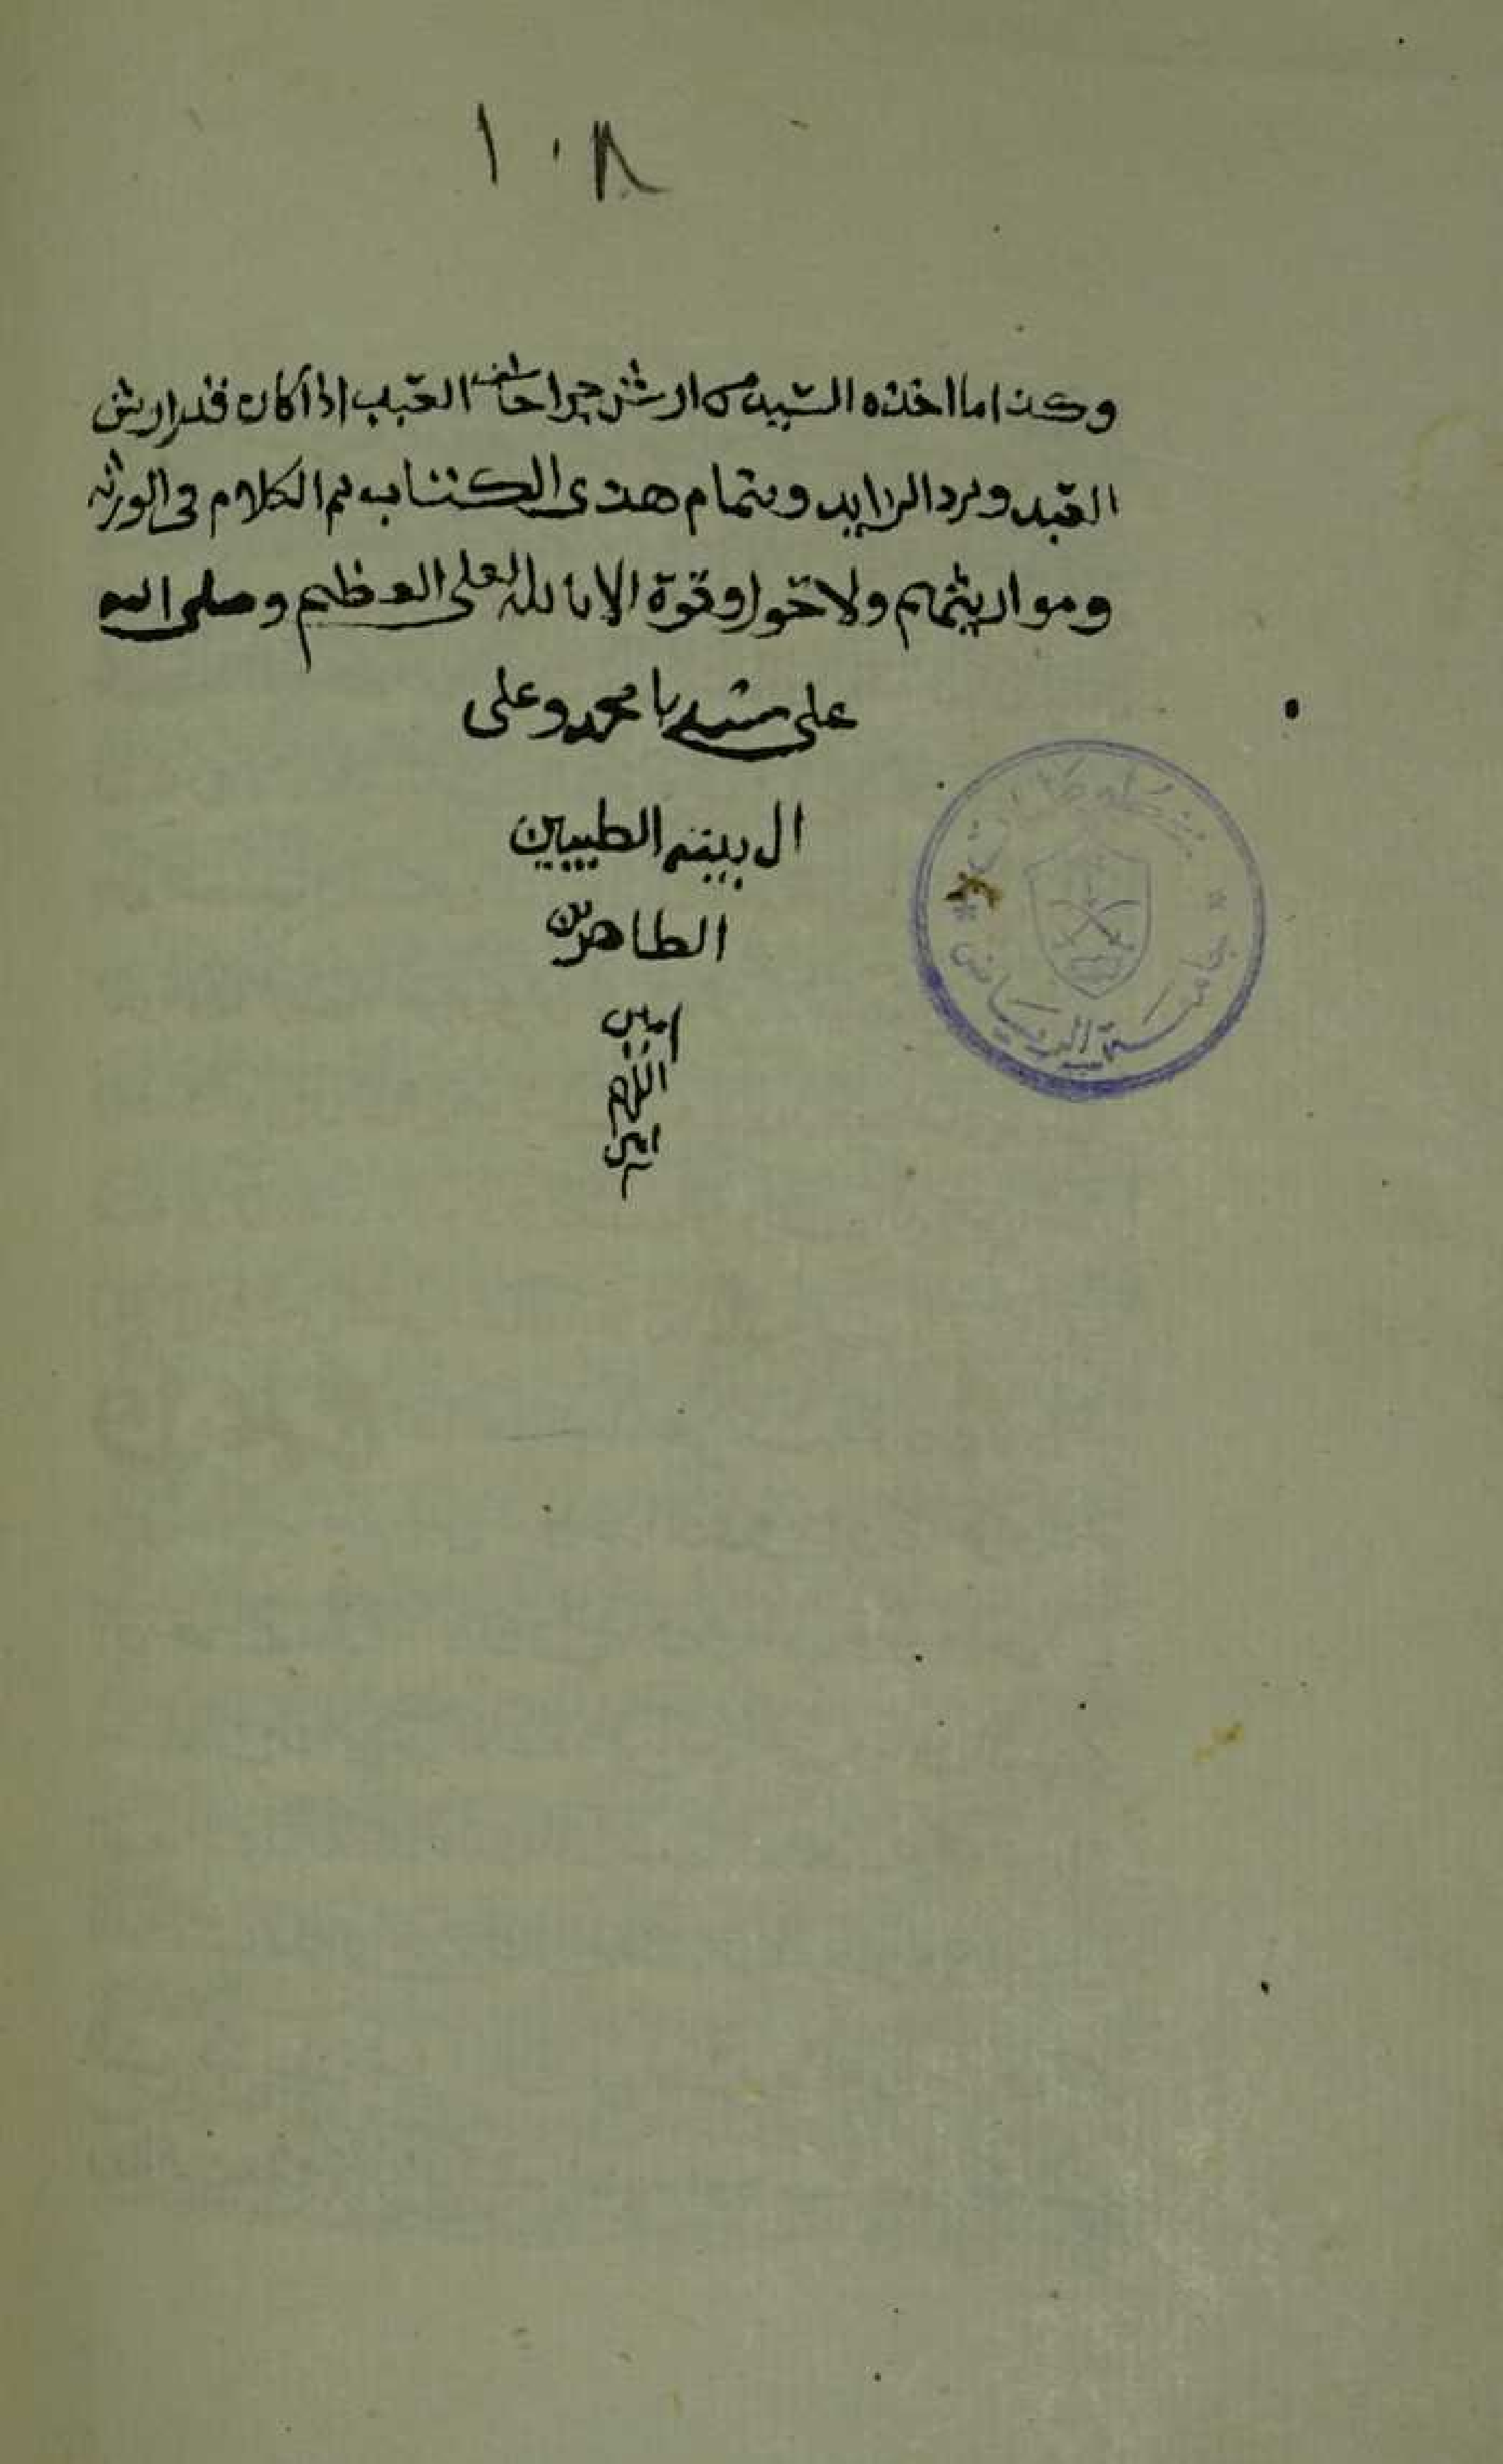 ١٠٨
وكذا ما اخذه السيد من ارش جراحات العبد اذا كان قدر ارش
العبد ويرد الزايد وبتمام هذى الكتاب تم الكلام في الورثه
ومواريثهم ولا حول وقوة الا بالله العلي العظيم وصلى الله
على سيدنا محمد وعلى
ال بيته الطيبين
الطاهرين
امين
اللهم
امين
جامعة الرياض